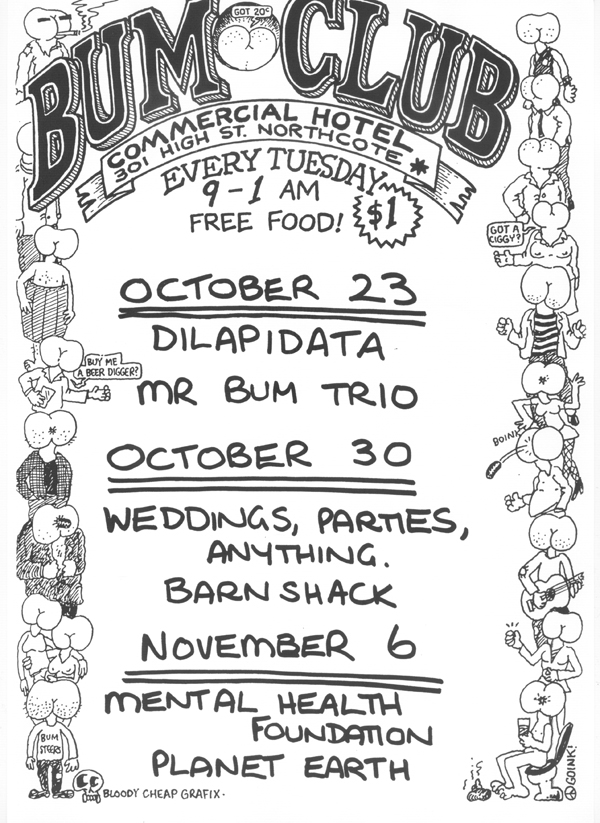 GOT 20¢
BUM CLUB
COMMERCIAL HOTEL
301 HIGH ST. NORTHCOTE *
EVERY TUESDAY
9-1 AM
FREE FOOD! $1
GOT A
CIGGY?
OCTOBER 23
DILAPIDATA
BUY ME
A BEER DIGGER?
MR BUM TRIO
BOINK
OCTOBER 30
WEDDINGS, PARTIES,
ANYTHING.
BARNSHACK
NOVEMBER 6
MENTAL HEALTH
FOUNDATION
BUM
STEERS
PLANET EARTH
GOINK!
BLOODY CHEAP GRAFIX.